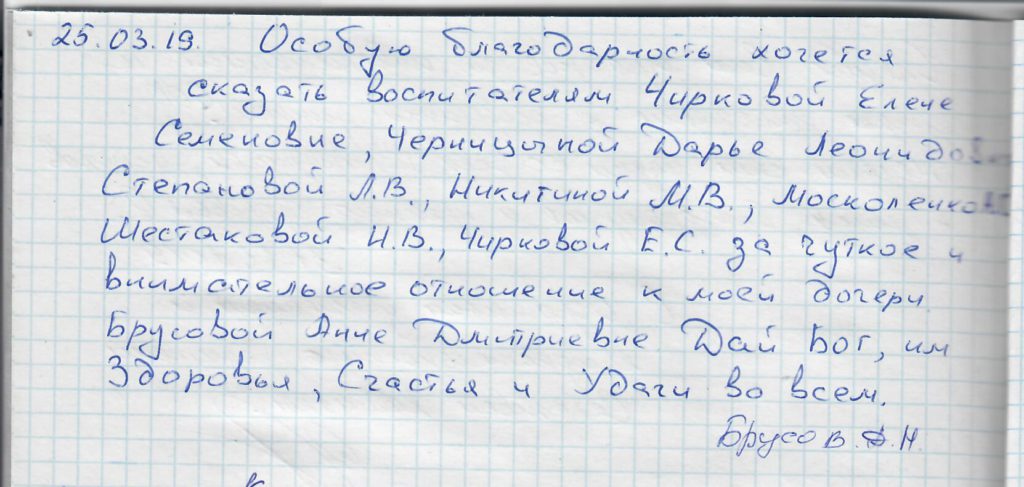 25.03.19. Особую благодарность хочется
сказать воспитателям Чирковой Елене
Семеновне, Черницыной Дарье
Степановой Л.В., Никитиной М.В.,
Шестаковой Н.В., Чирковой Е.С. за чуткое и
внимательное отношение к моей дочери
Брусовой Анне Дмитриевне Дай Бог, им
Здоровья, Счастья и Удачи во всем.
Брусов. Д.Н.